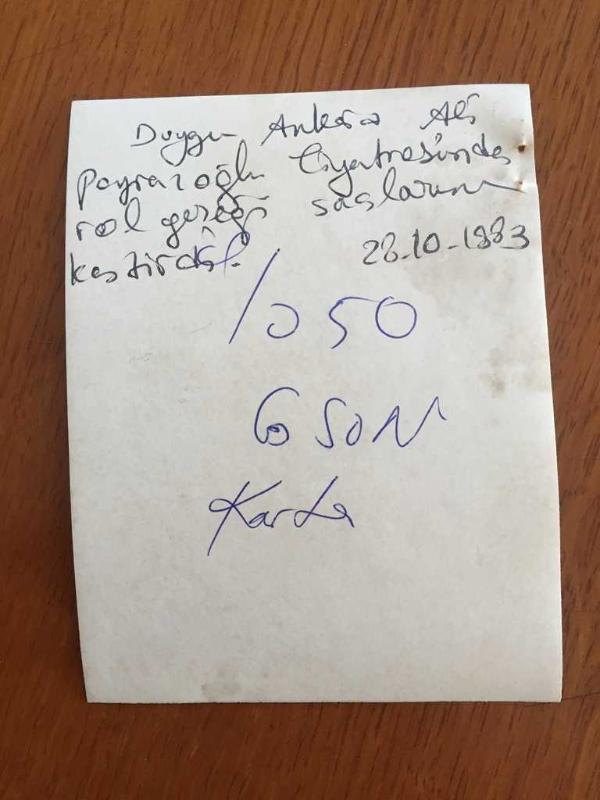 Duygu Ankara Ali
Poyrazoğlu Tiyatrosunda
rol gereği saçlarını
kestirdi. 28.10.1983
1050
6 SON
Karta